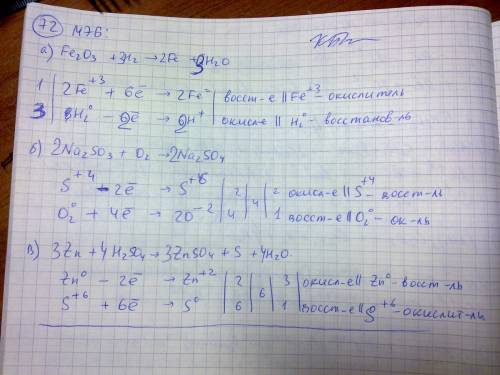 72 №76:
а) Fe₂O₃ + 3H₂ → 2Fe + 3H₂O
1 | 2Fe⁺³ + 6ē → 2Fe⁰ | восст-е || Fe⁺³ – окислитель
3 | H₂⁰ – 2ē → 2H⁺ | окисл-е || H₂⁰ – восстанов-ль
б) 2Na₂SO₃ + O₂ → 2Na₂SO₄
S⁺⁴ – 2ē → S⁺⁶ | 2 | 4 | 2 окисл-е || S⁺⁴ – восст-ль
O₂⁰ + 4ē → 2O⁻² | 4 | 1 восст-е || O₂⁰ – ок-ль
в) 3Zn + 4H₂SO₄ → 3ZnSO₄ + S + 4H₂O
Zn⁰ – 2ē → Zn⁺² | 2 | 6 | 3 | окисл-е || Zn⁰ – восст-ль
S⁺⁶ + 6ē → S⁰ | 6 | 1 | восст-е || S⁺⁶ – окислит-ль